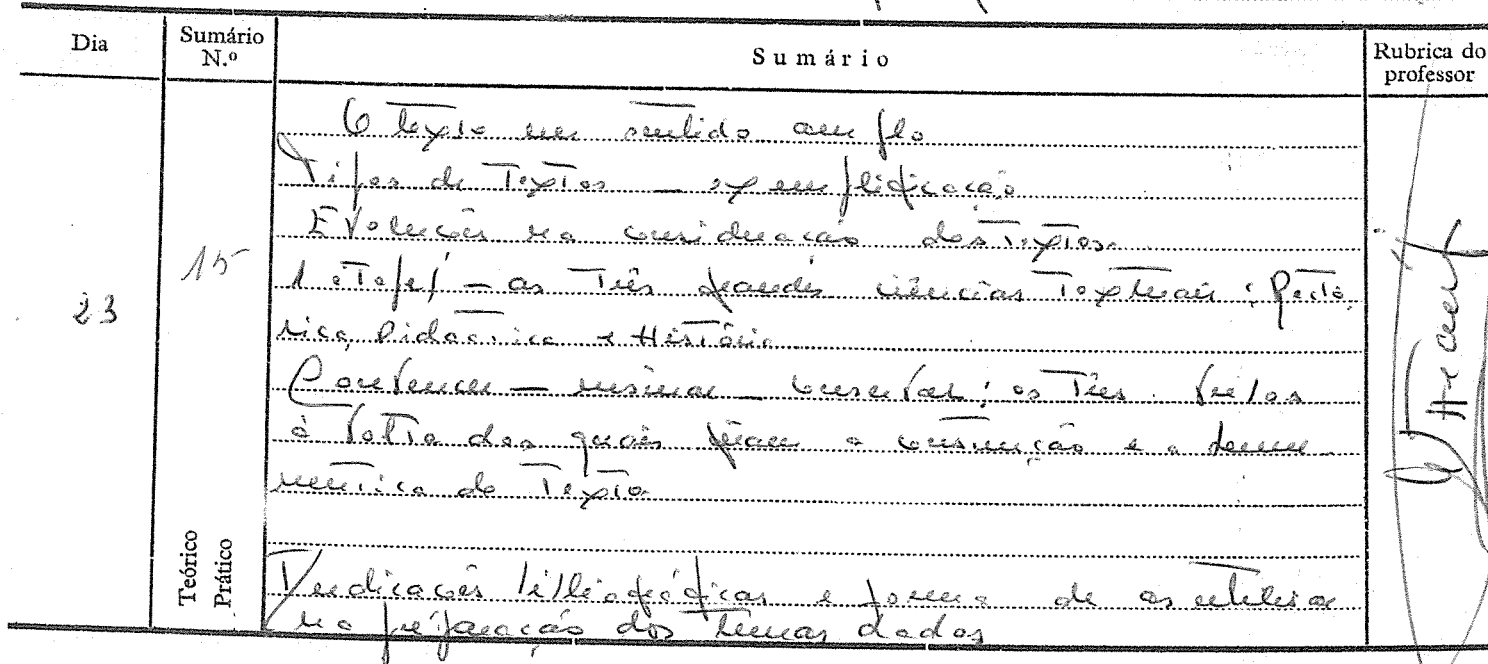 Dia
Sumário N.º
Sumário
Rubrica do professor
23
15
Teórico
Prático
O texto em sentido amplo
Tipos de Textos — exemplificação
Evolução na consideração dos Textos
1ª etapa — as Três grandes ciências Textuais: Retó
rica, Didáctica e História
Convencer — ensinar — conservar; os Três verbos
à volta dos quais giram a construção e a herme
nêutica do Texto
Indicações bibliográficas e forma de as utilizar
na preparação dos temas dados